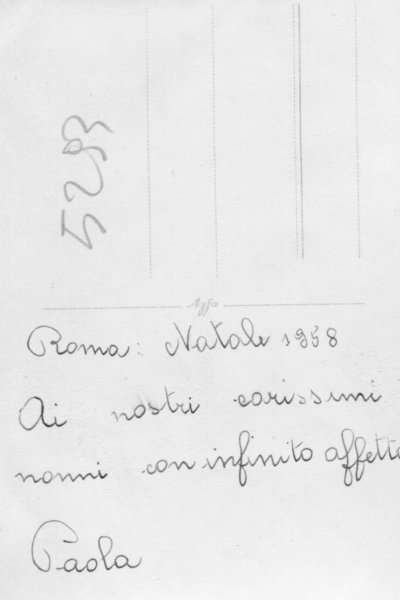 5293
Agfa
Roma: Natale 1958
Ai nostri carissimi
nonni con infinito affetto
Paola